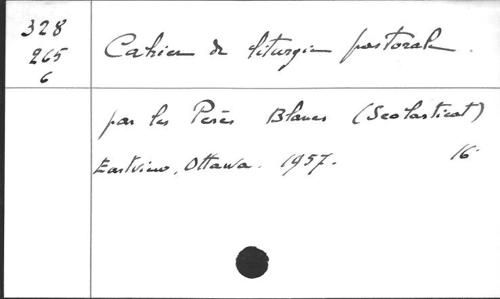 328
265
6
Cahier de liturgie pastorale.
par les Pères Blancs (Scolasticat)
Eastview, Ottawa. 1957. 16